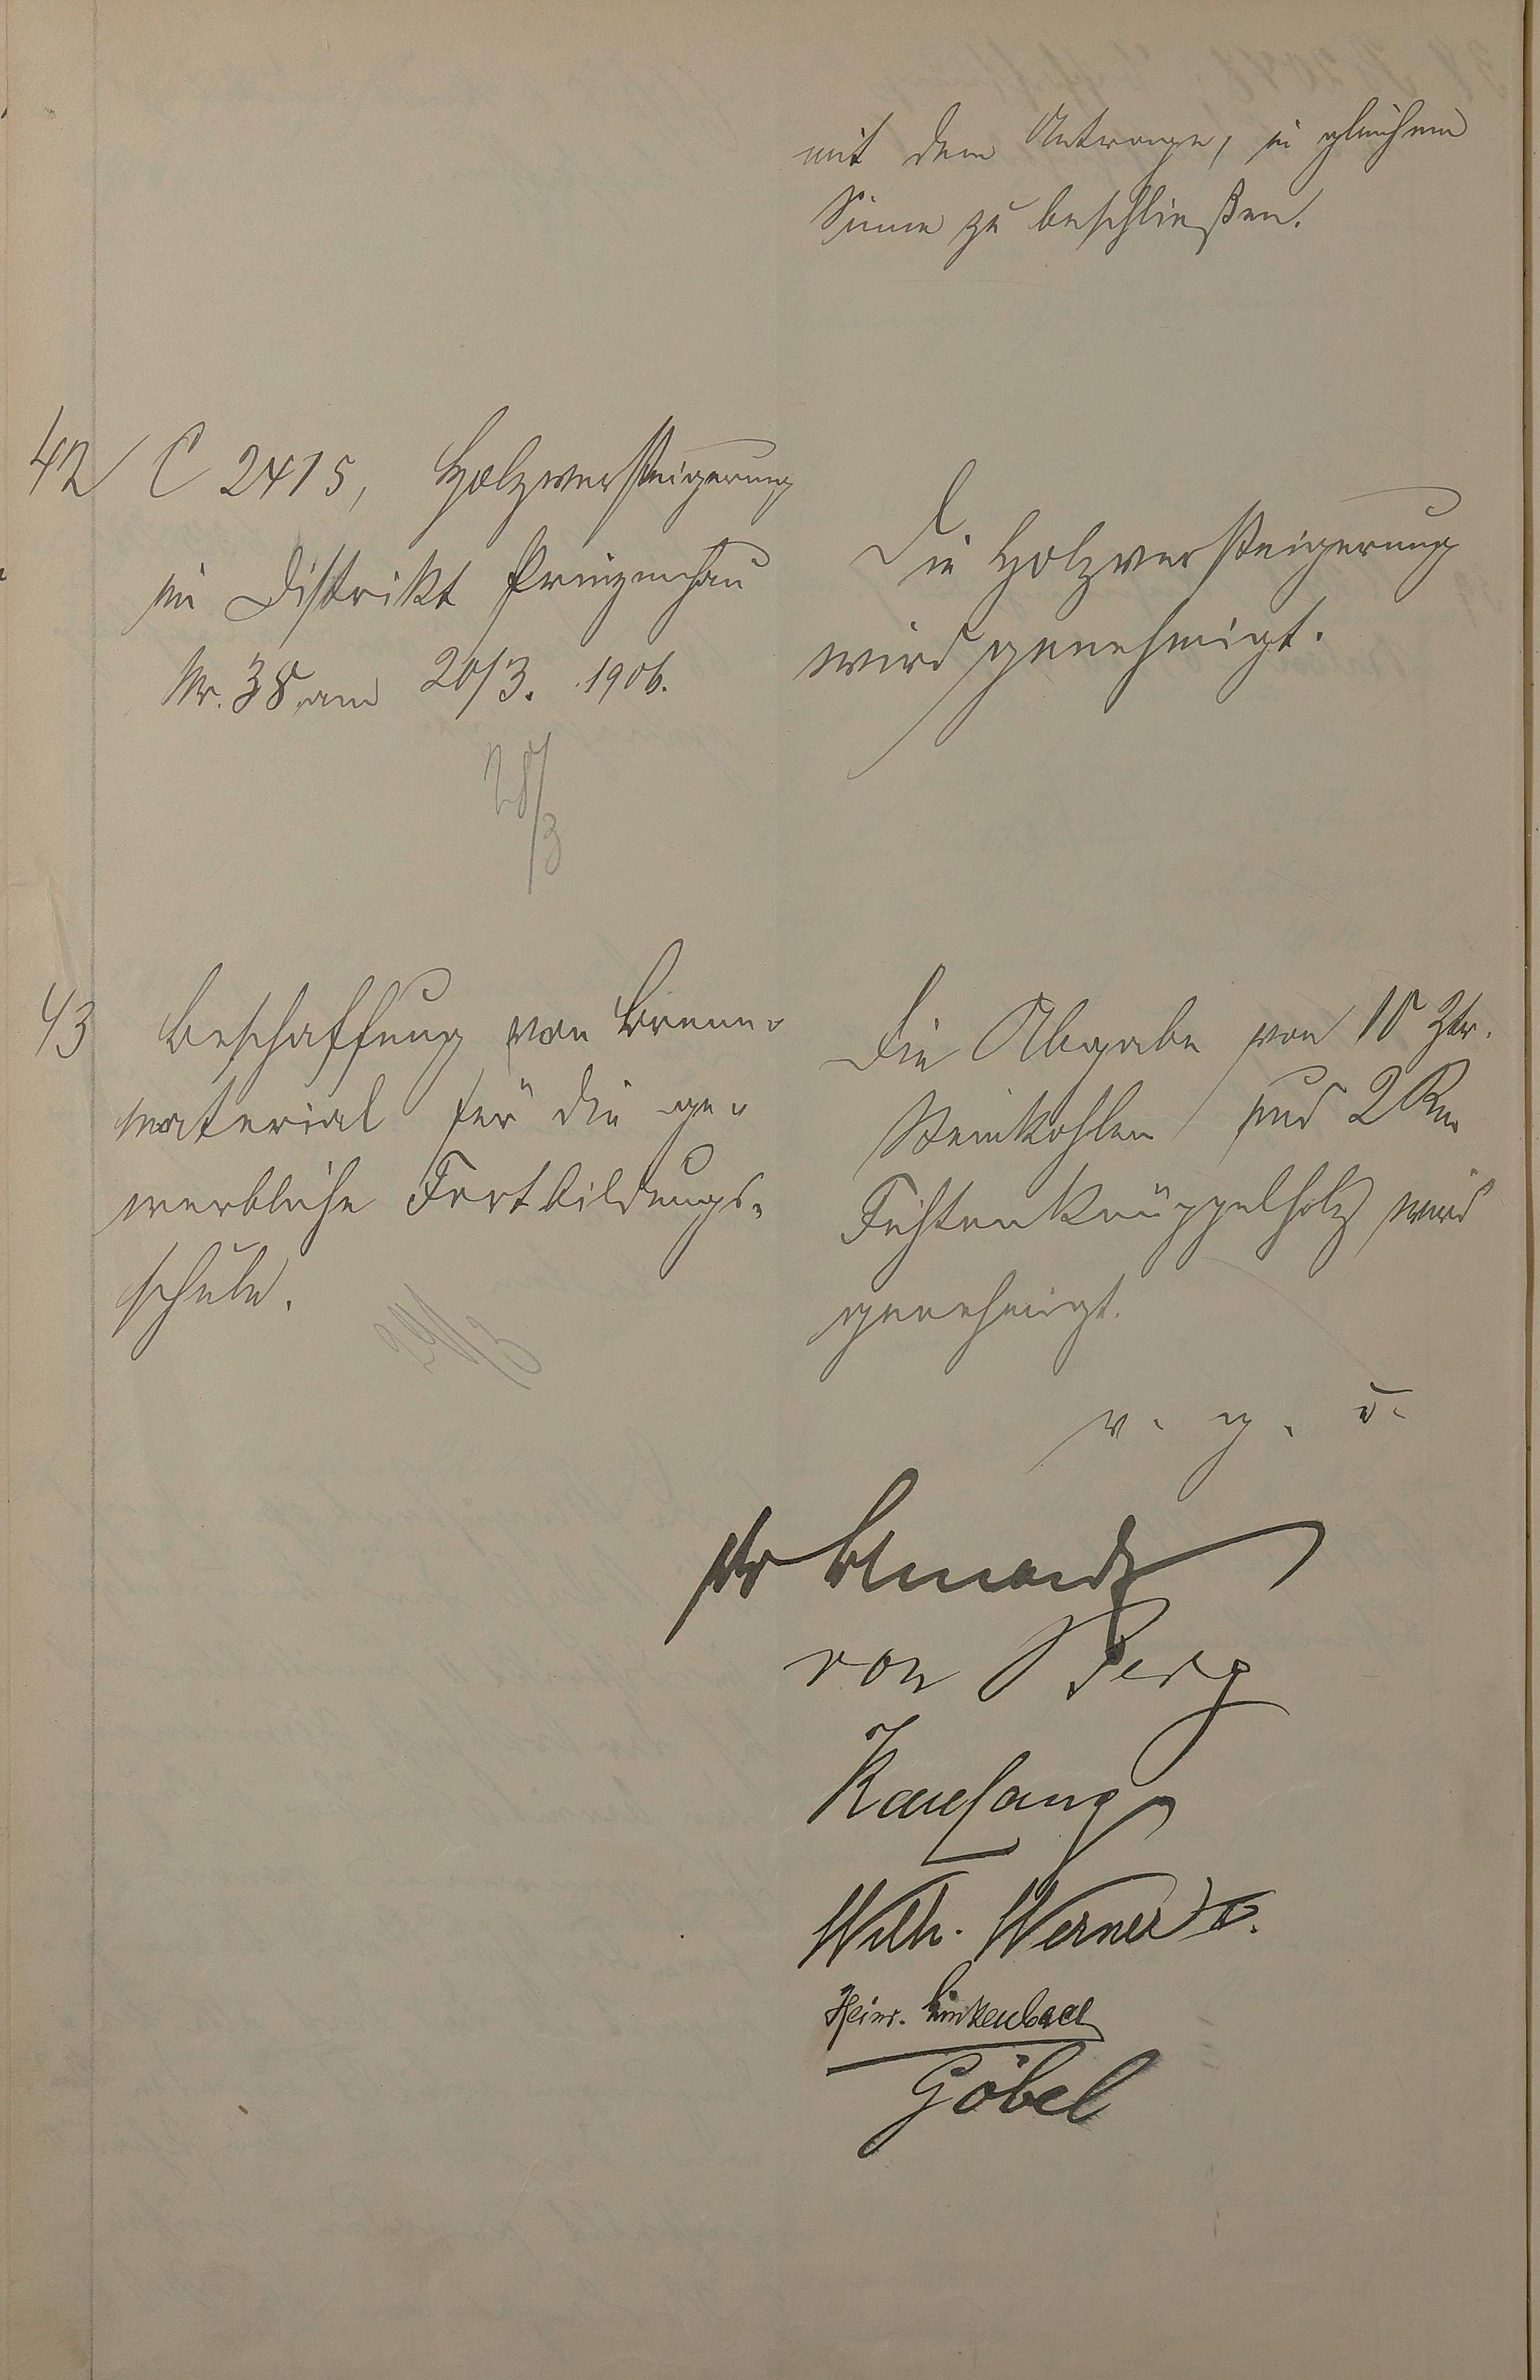 mit dem Antrage, in gleichem
Sinne zu beschließen.
42 C 2415, Holzversteigerung
im Distrikt Prinzenhau
Nr. 38 am 20/3. 1906.
28/3
Die Holzversteigerung
wird genehmigt.
43 Beschaffung von Brenn-
material für die ge-
werbliche Fortbildungs-
schule.
29/3
Die Abgabe von 10 Ztr.
Steinkohlen und 2 Rm
Fichtenknüppelholz wird
genehmigt.
v. g. u.
von Berg
Kaufang
Wilh. Werner
Heinr. Linkenbach
Göbel